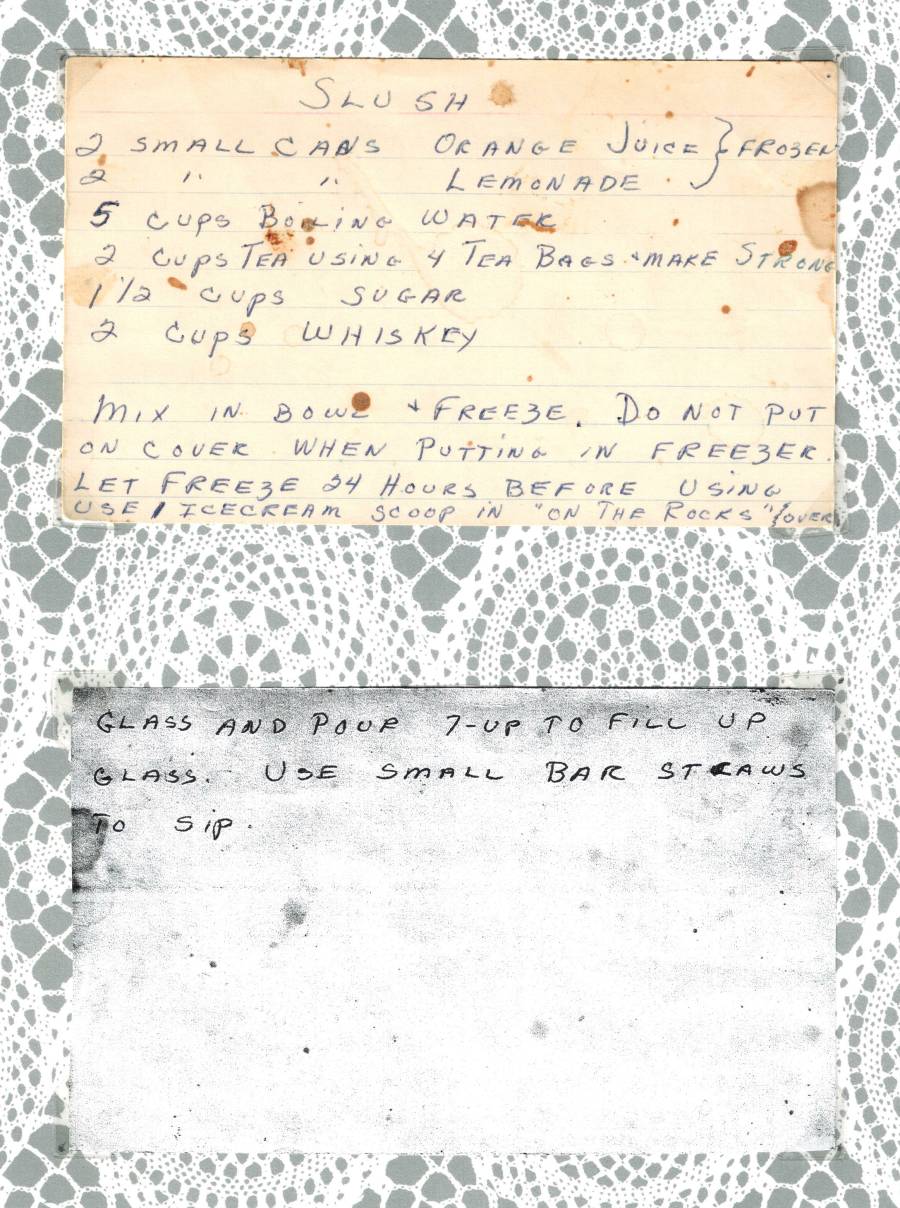 SLUSH
2 SMALL CANS ORANGE JUICE } FROZEN
2 " " LEMONADE
5 CUPS BOILING WATER
2 CUPS TEA USING 4 TEA BAGS + MAKE STRONG
1 1/2 CUPS SUGAR
2 CUPS WHISKEY
MIX IN BOWL + FREEZE. DO NOT PUT
ON COVER WHEN PUTTING IN FREEZER.
LET FREEZE 24 HOURS BEFORE USING
USE 1 ICECREAM SCOOP IN "ON THE ROCKS" {OVER
GLASS AND POUR 7-UP TO FILL UP
GLASS. USE SMALL BAR STRAWS
TO SIP.